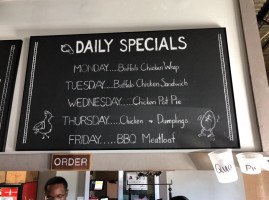 DAILY SPECIALS
MONDAY.....Buffalo Chicken Wrap
TUESDAY.....Buffalo Chicken Sandwich
WEDNESDAY.....Chicken Pot Pie
THURSDAY.....Chicken & Dumplings
FRIDAY.....BBQ Meatloaf
ORDER